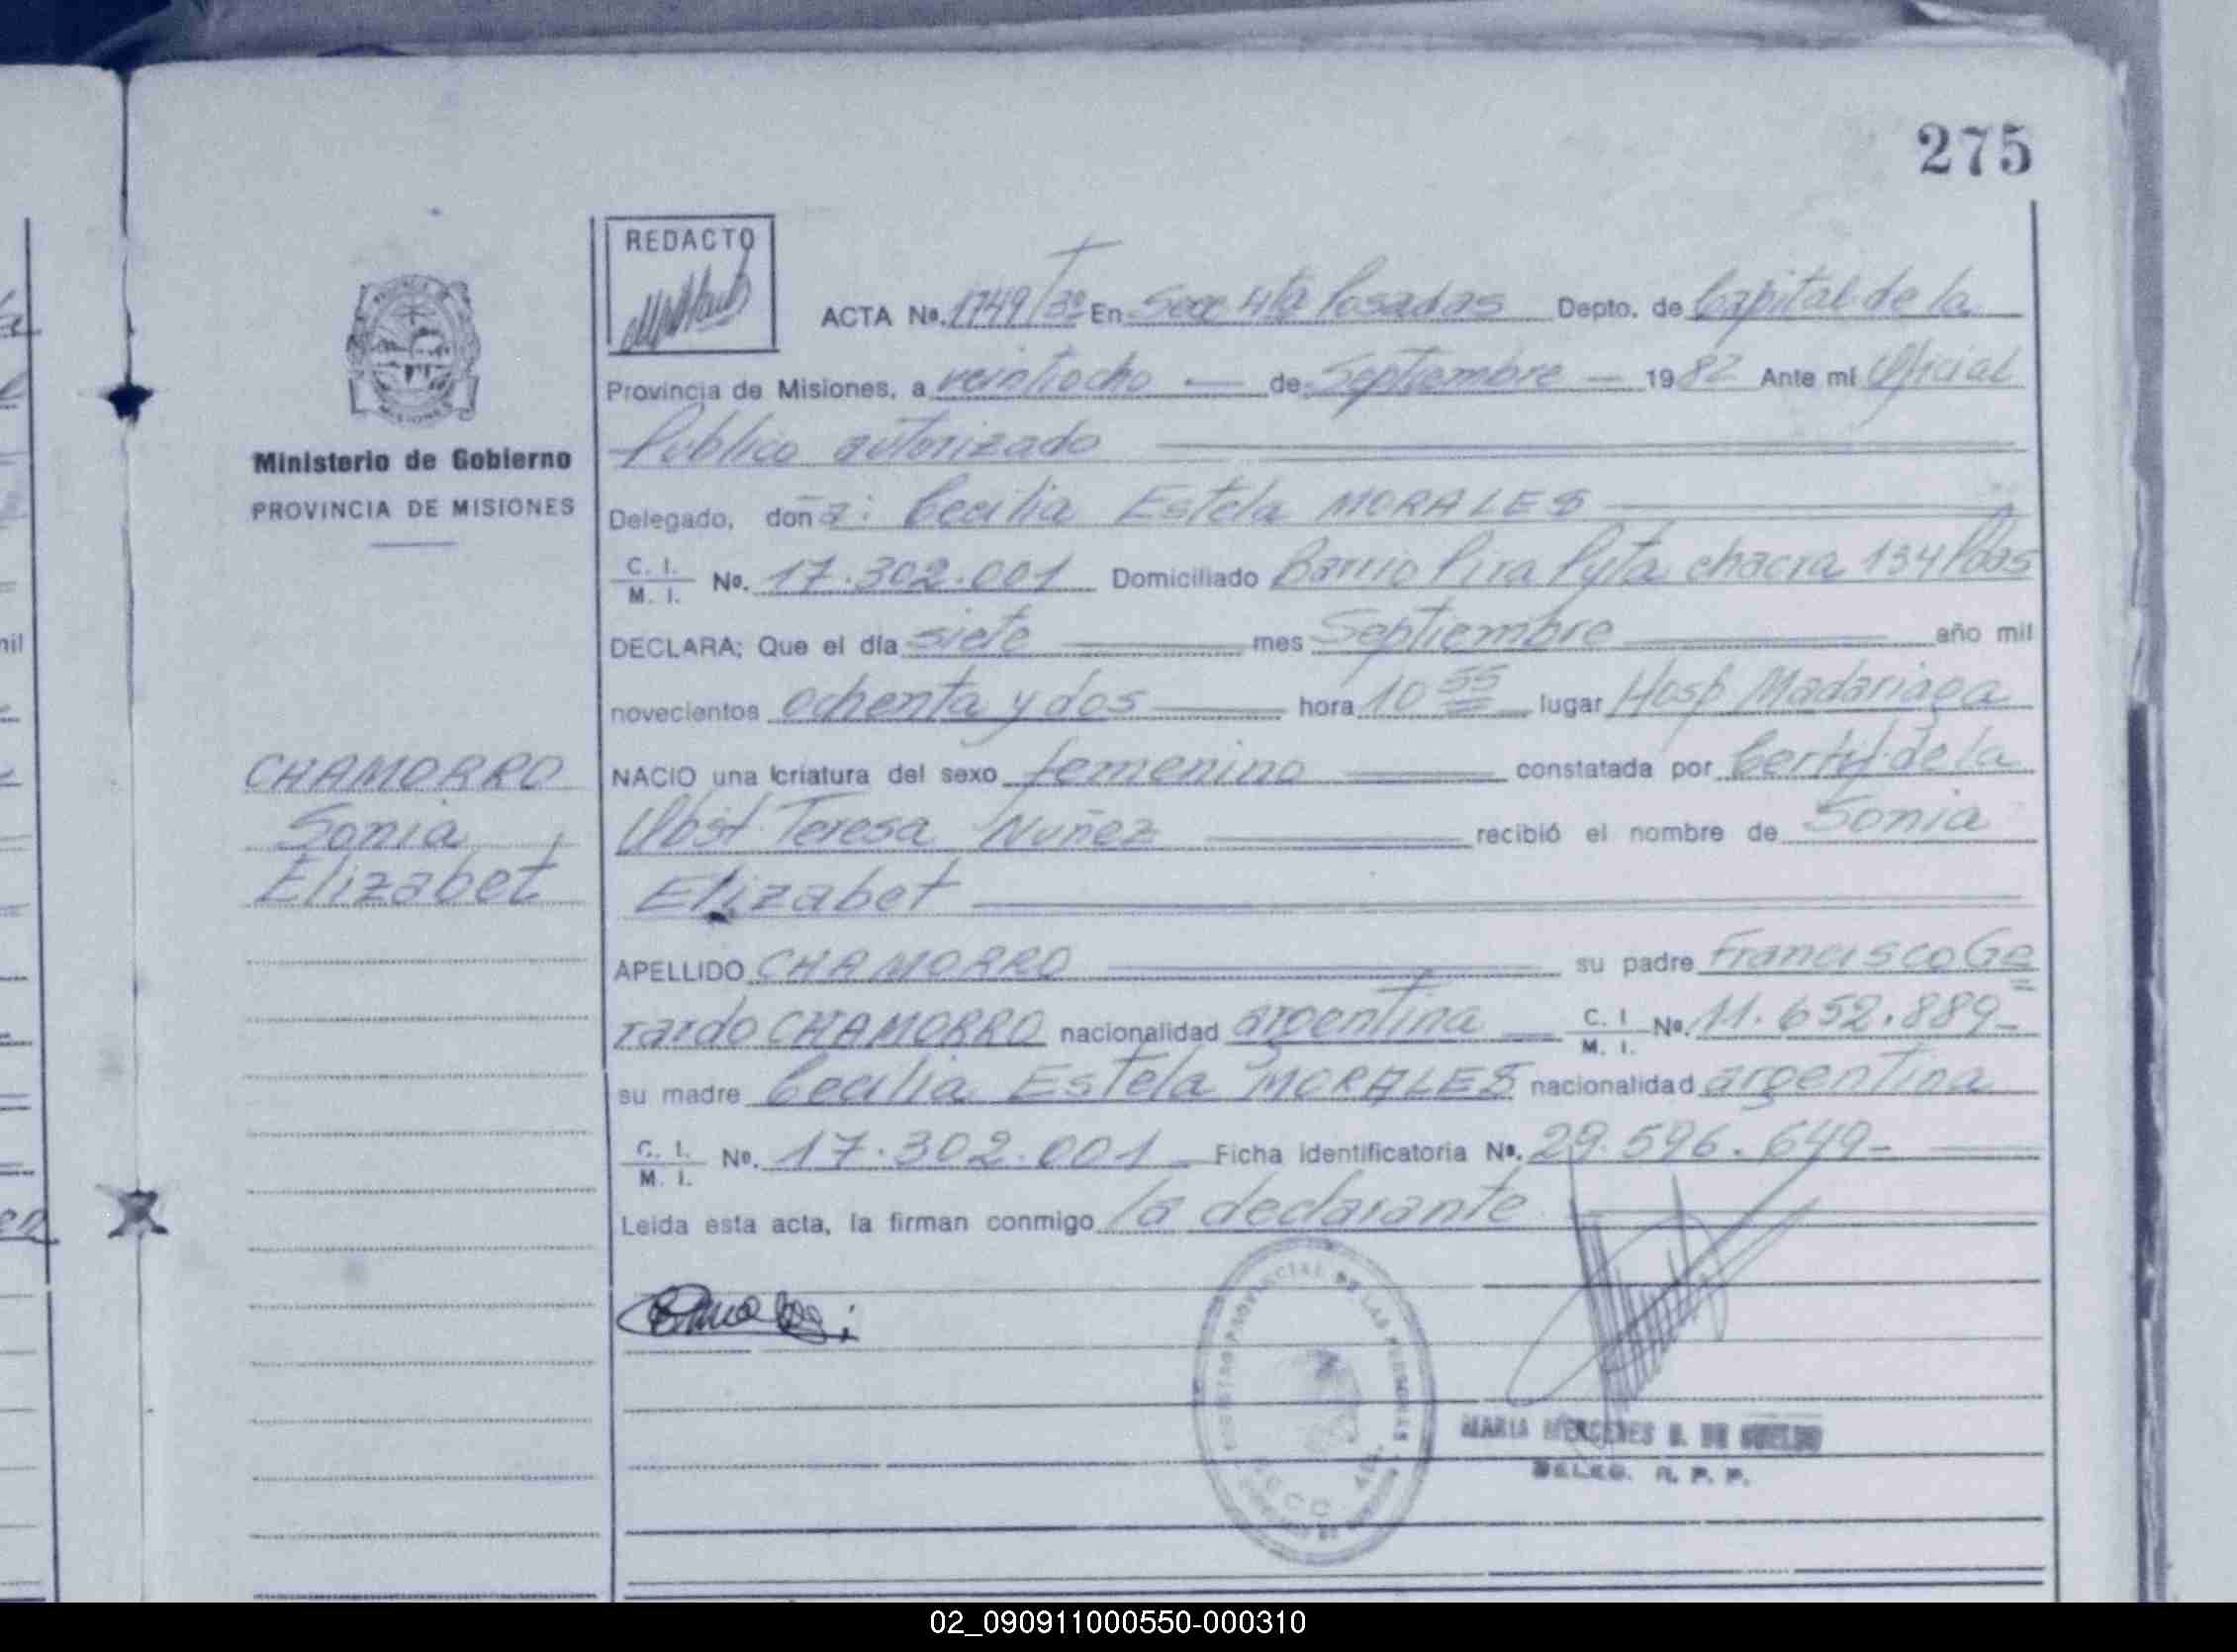 275
REDACTO
ACTA Nº. 1749/Tº3º En Secc 4ta Posadas Depto. de Capital de la
Provincia de Misiones, a veintiocho — de Septiembre — 1982 Ante mi Oficial
Publico autorizado
Ministerio de Gobierno
PROVINCIA DE MISIONES
Delegado, doña: Cecilia Estela MORALES
C. I. M. I. Nº. 17.302.001 Domiciliado Barrio Pira Pyta chacra 134 Pdas
DECLARA; Que el día siete mes Septiembre año mil
novecientos ochenta y dos hora 10 55 lugar Hosp Madariaga
NACIO una criatura del sexo femenino constatada por Certif. de la
Obst. Teresa Nuñez recibió el nombre de Sonia
Elizabet
CHAMORRO
Sonia
Elizabet
APELLIDO CHAMORRO su padre Francisco Ge
rardo CHAMORRO nacionalidad argentina C. I M. I. Nº. 11.652.889-
su madre Cecilia Estela MORALES nacionalidad argentina
C. I. M. I. Nº. 17.302.001 Ficha identificatoria Nº. 29.596.649-
Leida esta acta, la firman conmigo la declarante
PROVINCIAL DE LAS PERSONAS
MARIA MERCEDES B. DE
DELEG. R. P. P.
02_090911000550-000310